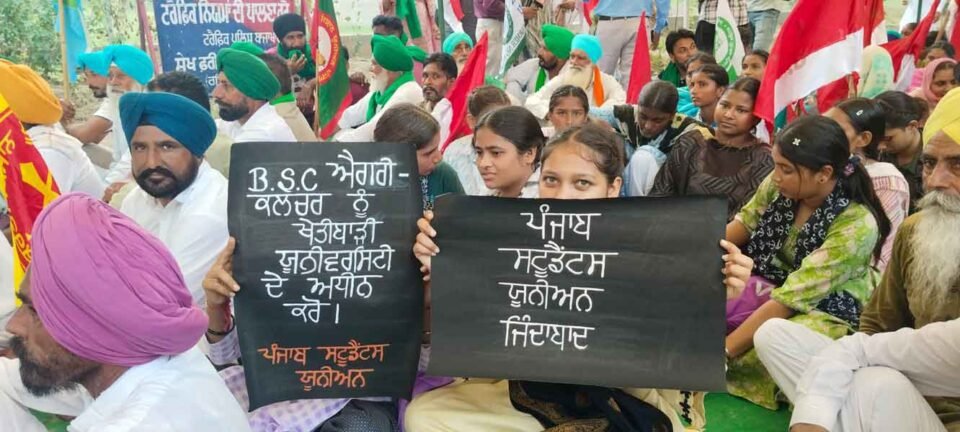 ਟਰੈਫਿਕ ਨਿਯਮਾਂ ਦੀ ਪਾਲਣਾ
ਟਰੈਫਿਕ ਪੁਲਿਸ
B.S.C ਐਗਰੀ-
ਕਲਚਰ ਨੂੰ
ਖੇਤੀਬਾੜੀ
ਯੂਨੀਵਰਸਿਟੀ
ਦੇ ਅਧੀਨ
ਕਰੋ।
ਪੰਜਾਬ ਸਟੂਡੈਂਟਸ
ਯੂਨੀਅਨ
ਪੰਜਾਬ
ਸਟੂਡੈਂਟਸ
ਯੂਨੀਅਨ
ਜਿੰਦਾਬਾਦ